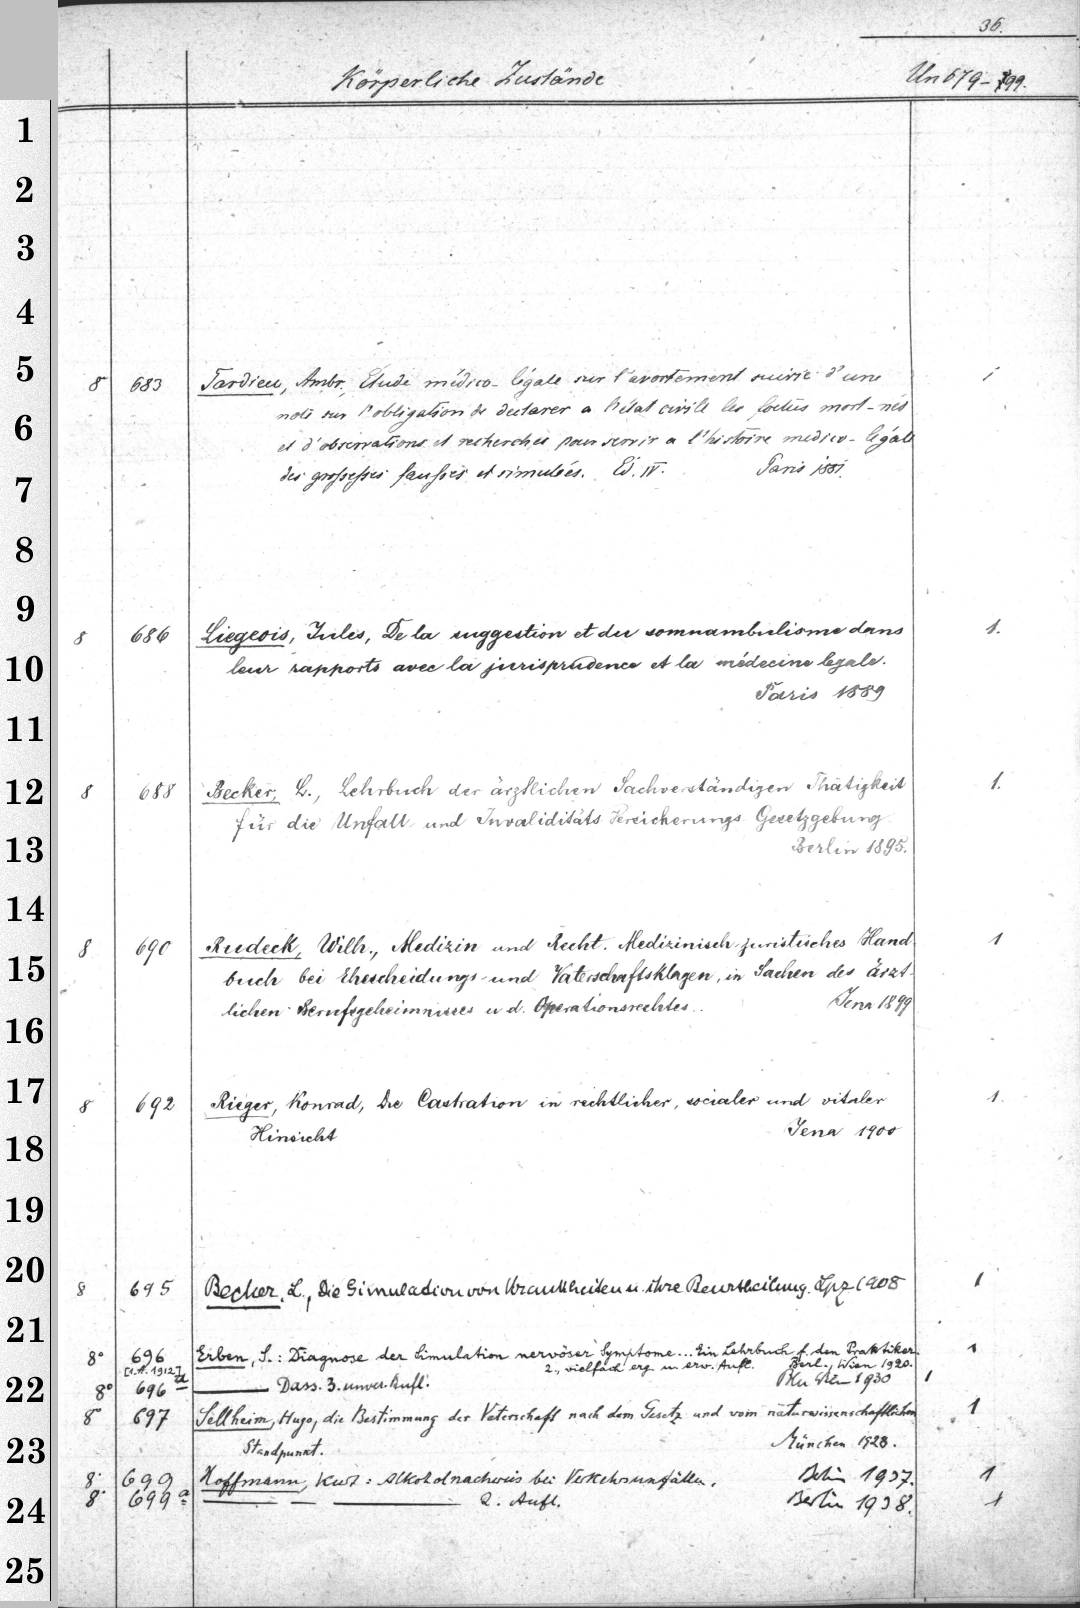 36.
Körperliche Zustände Un 679-799.
1
2
3
4
5
8 683 Tardieu, Ambr., Etude médico-légale sur l'avortement suivie d'une 1
note sur l'obligation de declarer a l'état civile les foetus mort-nés
6
et d'observations et recherches pour servir a l'histoire medico-légale
7
des grossesses fausses et simulées. Ed. IV. Paris 1881.
8
9
8 686 Liegeois, Jules, De la suggestion et du somnambulisme dans 1.
10
leur rapports avec la jurisprudence et la médecine legale.
Paris 1889
11
12
8 688 Becker, L., Lehrbuch der ärztlichen Sachverständigen Thätigkeit 1.
für die Unfall- und Invaliditäts Versicherungs Gesetzgebung
13
Berlin 1895.
14
8 690 Rudeck, Wilh., Medizin und Recht. Medizinisch-juristisches Hand- 1
15
buch bei Ehescheidungs- und Vaterschaftsklagen, in Sachen des ärzt-
lichen Berufsgeheimnisses u d. Operationsrechtes. Jena 1899
16
17
8 692 Rieger, Konrad, Die Castration in rechtlicher, socialer und vitaler 1.
18
Hinsicht Jena 1900
19
20
8 695 Becker, L., Die Simulation von Krankheiten u. ihre Beurtheilung. Lpz 1908 1
21
8° 696 Erben, S.: Diagnose der Simulation nervöser Symptome... Ein Lehrbuch f. den Praktiker. 1
[1.A. 1912] 2., vielfach erg. u. erw. Aufl. Berl., Wien 1920.
22
8° 696 a Dass. 3. unver. Aufl. Wien 1930 1
8° 697 Sellheim, Hugo, die Bestimmung der Vaterschaft nach dem Gesetz und vom naturwissenschaftlichen 1
23
Standpunkt. München 1928.
8° 699 Hoffmann, Kurt: Alkoholnachweis bei Verkehrsunfällen. Berlin 1937. 1
24
8° 699 a 2. Aufl. Berlin 1938. 1
25